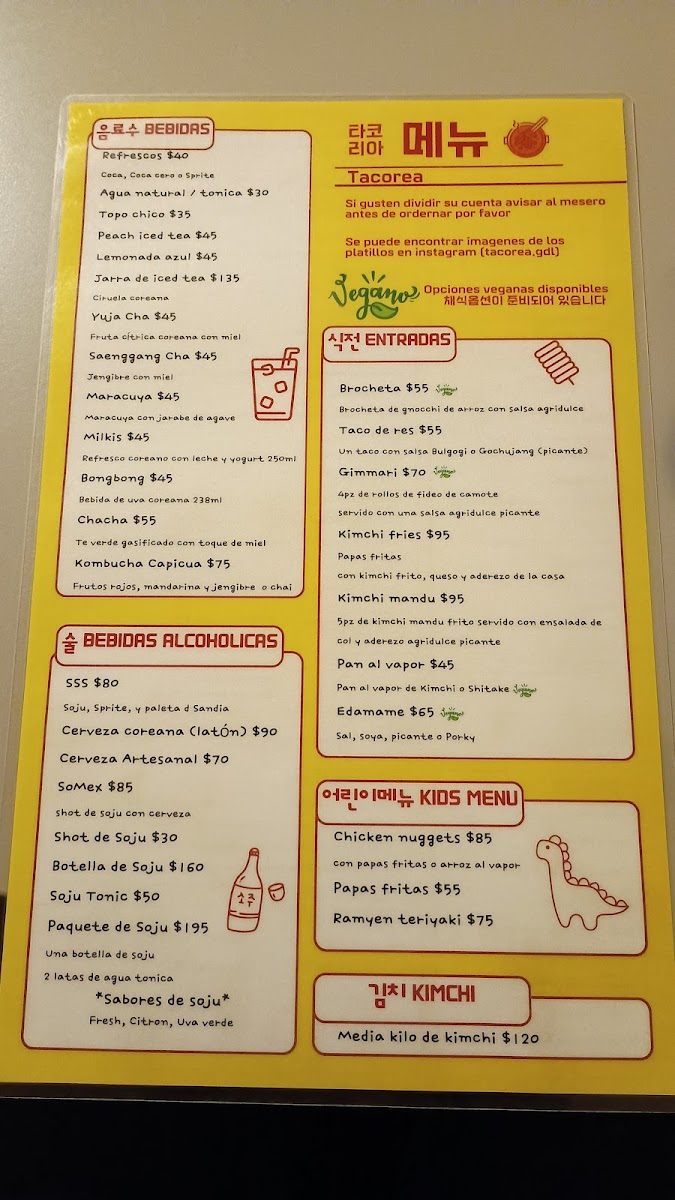 음료수 BEBIDAS
Refrescos $40
Coca, Coca cero o Sprite
Agua natural / tonica $30
Topo chico $35
Peach iced tea $45
Lemonada azul $45
Jarra de iced tea $135
Ciruela coreana
Yuja Cha $45
Fruta cítrica coreana con miel
Saenggang Cha $45
Jengibre con miel
Maracuya $45
Maracuya con jarabe de agave
Milkis $45
Refresco coreano con leche y yogurt 250ml
Bongbong $45
Bebida de uva coreana 238ml
Chacha $55
Te verde gasificado con toque de miel
Kombucha Capicua $75
Frutos rojos, mandarina y jengibre o chai
술 BEBIDAS ALCOHOLICAS
SSS $80
Soju, Sprite, y paleta d Sandia
Cerveza coreana (latÓn) $90
Cerveza Artesanal $70
SoMex $85
shot de soju con cerveza
Shot de Soju $30
Botella de Soju $160
Soju Tonic $50
소주
Paquete de Soju $195
Una botella de soju
2 latas de agua tonica
*Sabores de soju*
Fresh, Citron, Uva verde
타코
리아
메뉴
Tacorea
Si gusten dividir su cuenta avisar al mesero
antes de ordernar por favor
Se puede encontrar imagenes de los
platillos en instagram (tacorea.gdl)
Vegano
Opciones veganas disponibles
채식옵션이 준비되어 있습니다
식전 ENTRADAS
Brocheta $55 Vegano
Brocheta de gnocchi de arroz con salsa agridulce
Taco de res $55
Un taco con salsa Bulgogi o Gochujang (picante)
Gimmari $70 Vegano
4pz de rollos de fideo de camote
servido con una salsa agridulce picante
Kimchi fries $95
Papas fritas
con kimchi frito, queso y aderezo de la casa
Kimchi mandu $95
5pz de kimchi mandu frito servido con ensalada de
col y aderezo agridulce picante
Pan al vapor $45
Pan al vapor de Kimchi o Shitake Vegano
Edamame $65 Vegano
Sal, soya, picante o Porky
어린이메뉴 KIDS MENU
Chicken nuggets $85
con papas fritas o arroz al vapor
Papas fritas $55
Ramyen teriyaki $75
김치 KIMCHI
Media kilo de kimchi $120